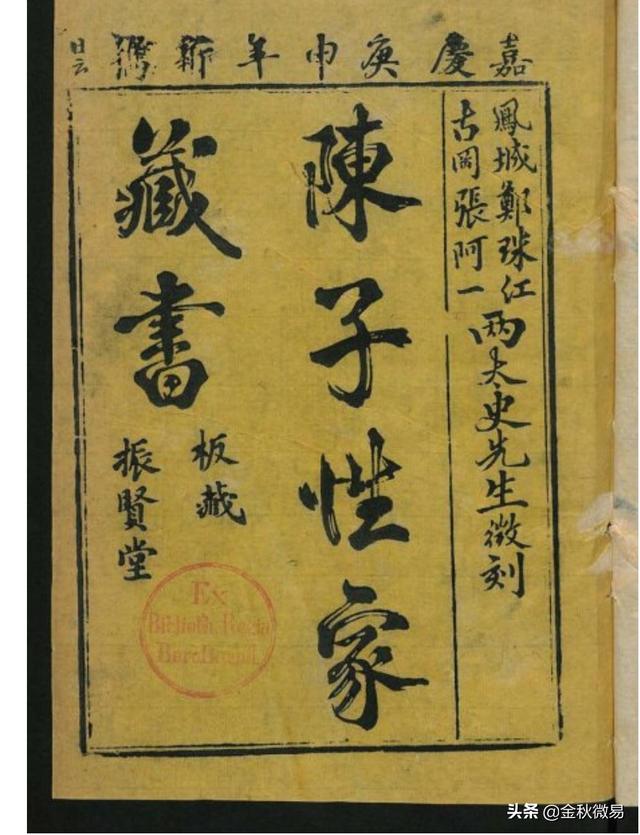 嘉慶庚申年新鐫
鳳城鄭珠江
古岡張阿一
两太史先生徵刻
陳子性家
藏書
板藏
振賢堂
Ex
Biblioth. Regia
Berolinensi.
头条 @金秋微易